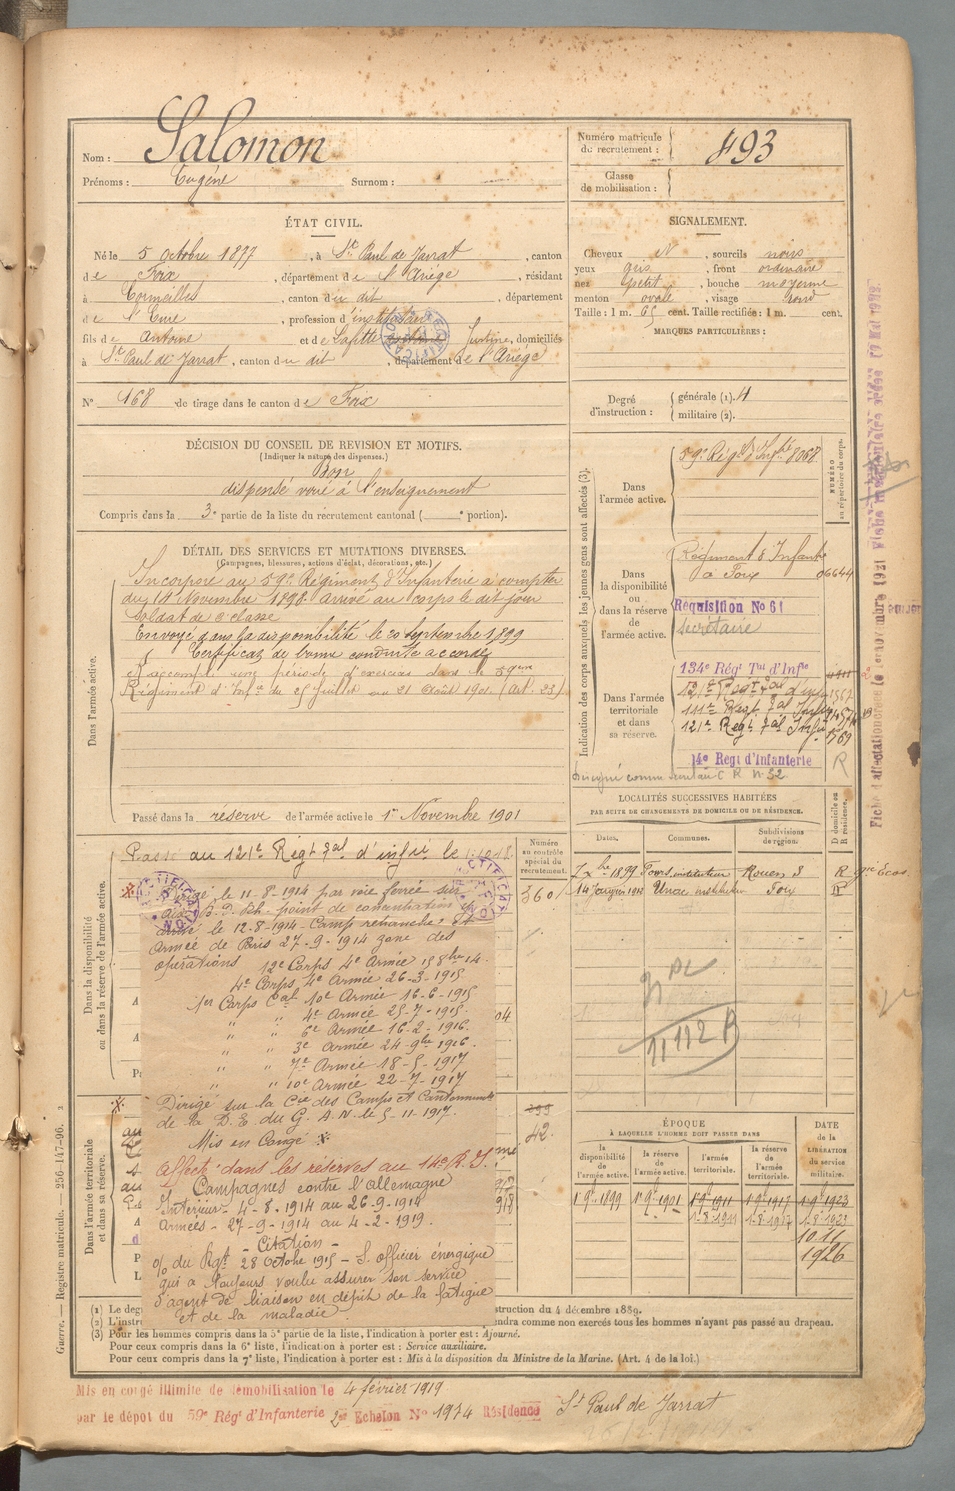 Nom : Salomon
Prénoms : Eugène Surnom :
Numéro matricule du recrutement : 493
Classe de mobilisation :
ÉTAT CIVIL.
Né le 5 octobre 1877, à St Paul de Jarrat, canton
de Foix, département de l'Ariège, résidant
à Cormeilles, canton du dit, département
de l'Eure, profession d'instituteur
fils de Antoine et de Lafitte Justine, domiciliés
à St Paul de Jarrat, canton du dit, département de l'Ariège
N° 168 de tirage dans le canton de Foix
SIGNALEMENT.
Cheveux N, sourcils noirs
yeux gris, front ordinaire
nez petit, bouche moyenne
menton ovale, visage rond
Taille : 1 m. 65 cent. Taille rectifiée : 1 m. cent.
MARQUES PARTICULIÈRES :
Degré d'instruction : générale (1). 4
militaire (2).
DÉCISION DU CONSEIL DE REVISION ET MOTIFS.
(Indiquer la nature des dispenses.)
Bon
dispensé voué à l'enseignement
Compris dans la 3e partie de la liste du recrutement cantonal ( e portion).
DÉTAIL DES SERVICES ET MUTATIONS DIVERSES.
(Campagnes, blessures, actions d'éclat, décorations, etc.)
Dans l'armée active.
Incorporé au 59e Régiment d'Infanterie à compter
du 14 Novembre 1898. Arrivé au corps le dit jour
Soldat de 2e classe
Envoyé dans la disponibilité le 20 septembre 1899
Certificat de bonne conduite accordé
a accompli une période d'exercices dans le 59ème
Régiment d'Infie du 25 Juillet au 21 Août 1901. (Art. 23)
Passé dans la réserve de l'armée active le 1er Novembre 1901
Indication des corps auxquels les jeunes gens sont affectés (3).
NUMÉRO au répertoire du corps.
Dans l'armée active.
59e Régt d'Infie 8068
Dans la disponibilité ou dans la réserve de l'armée active.
Régiment d'Infanterie
à Foix 06644
Réquisition No 61
Secrétaire
Dans l'armée territoriale et dans sa réserve.
134e Régt Tal d'Infie
121e Regt Tal d'Inf
111e Regt Tal Inf
121e Regt Tal Inf 1769
14e Regt d'Infanterie
R
LOCALITÉS SUCCESSIVES HABITÉES
PAR SUITE DE CHANGEMENTS DE DOMICILE OU DE RÉSIDENCE.
Dates. Communes. Subdivisions de région. D domicile ou R résidence.
7bre 1899 instituteur Rouen S R
14 janvier 1913 Unac instituteur Foix R
Dans la disponibilité ou dans la réserve de l'armée active.
Numéro au contrôle spécial du recrutement.
Passé au 121e Regt Tal d'infie le
3601
Dirigé le 11-8-1914 par voie ferrée sur
point de concentration
arrivé le 12-8-1914 - Camp retranché et
Armée de Paris 27-9-1914 zone des
opérations 12e Corps 4e Armée
4e Corps 4e Armée 26-3-1915
1er Corps Cal 10e Armée 16-6-1915
" " 4e Armée 25-7-1915
" " 6e Armée 16-2-1916
" " 3e Armée 24-9bre 1916
" " 7e Armée 18-5-1917
" " 10e Armée 22-7-1917
Dirigé sur la Cie des Camps et Cantonnements
de la D.E. du G.A.N. le 5-11-1917.
Mis en Congé
Affecté dans les réserves au 14e R.I.
Campagnes contre l'allemagne
Intérieur - 4-8-1914 au 26-9-1914
Armées - 27-9-1914 au 4-2-1919.
- Citation -
% du Régt 28 Octobre 1915 - S. officier énergique
qui a toujours voulu assurer son service
d'agent de liaison en dépit de la fatigue
et de la maladie
Dans l'armée territoriale et dans sa réserve.
42.
112
ÉPOQUE
À LAQUELLE L'HOMME DOIT PASSER DANS
la disponibilité de l'armée active. la réserve de l'armée active. l'armée territoriale. la réserve de l'armée territoriale. DATE de la LIBÉRATION du service militaire.
1 9bre 1899 1 9bre 1901 1 9bre 1911 1 9bre 1917 1 9bre 1923
1.8.1911 1.8.1917 1.8.1923
10.11
1926
(1) Le deg
(2) L'instr
struction du 4 décembre 1889.
endra comme non exercés tous les hommes n'ayant pas passé au drapeau.
(3) Pour les hommes compris dans la 5e partie de la liste, l'indication à porter est : Ajourné.
Pour ceux compris dans la 6e liste, l'indication à porter est : Service auxiliaire.
Pour ceux compris dans la 7e liste, l'indication à porter est : Mis à la disposition du Ministre de la Marine. (Art. 4 de la loi.)
Mis en congé illimité de démobilisation le 4 février 1919
par le dépôt du 59e Régt d'Infanterie 2er Echelon No 1974 Résidence St Paul de Jarrat
Guerre. — Registre matricule. — 256-147-96.